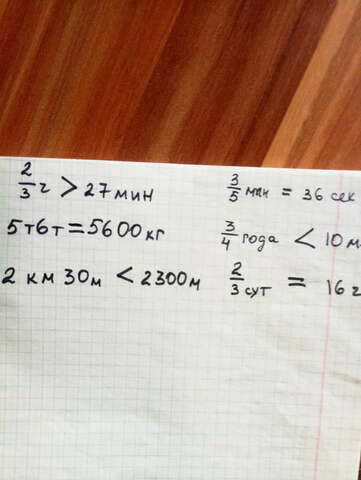 2/3 ч > 27 мин
5т6т = 5600 кг
2 км 30м < 2300м
3/5 мин = 36 сек
3/4 года < 10 м
2/3 сут = 16 г